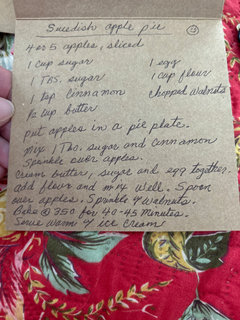 Swedish apple pie
4 or 5 apples, sliced
1 cup sugar 1 egg
1 TBS. sugar 1 cup flour
1 tsp cinnamon chopped walnuts
1/2 cup butter
put apples in a pie plate.
mix 1 TBS. sugar and cinnamon
Sprinkle over apples.
Cream butter, sugar and egg together.
add flour and mix well. Spoon
over apples. Sprinkle w/ walnuts.
Bake @ 350 for 40-45 minutes.
Serve warm w/ ice cream